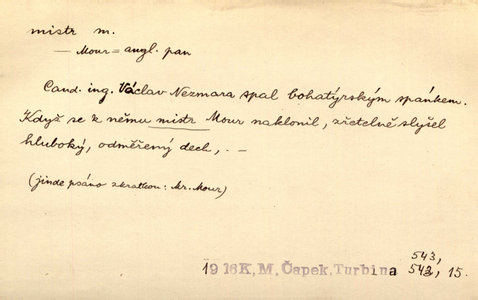 mistr m.
— Mour = angl. pan
Cand. ing. Václav Nezmara spal bohatýrským spánkem.
Když se k němu mistr Mour naklonil, zřetelně slyšel
hluboký, odměřený dech, . –
(jinde psáno zkratkou: Mr. Mour)
543,
1916 K, M, Čapek, Turbina 542, 15.